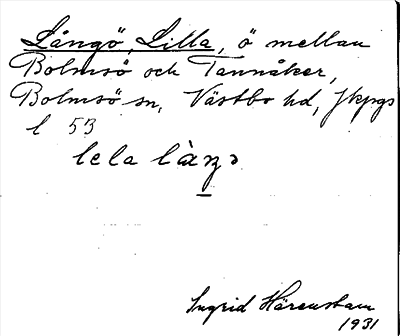 Långö, Lilla, ö mellan
Bolmsö och Tannåker,
Bolmsö sn, Västbo hd, Jkpgs
l 53
lela
Ingrid Härenstam
1931